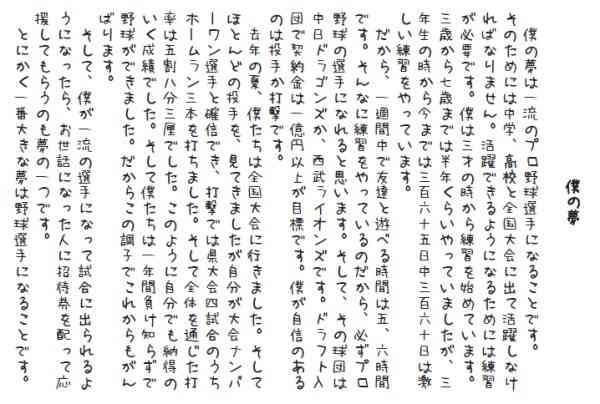 僕の夢
僕の夢は一流のプロ野球選手になることです。
そのためには中学、高校と全国大会に出て活躍しなけ
ればなりません。活躍できるようになるためには練習
が必要です。僕は三才の時から練習を始めています。
三歳から七歳までは半年くらいやっていましたが、三
年生の時から今までは三百六十五日中三百六十日は激
しい練習をやっています。
だから、一週間中で友達と遊べる時間は五、六時間
です。そんなに練習をやっているのだから、必ずプロ
野球の選手になれると思います。そして、その球団は
中日ドラゴンズか、西武ライオンズです。ドラフト入
団で契約金は一億円以上が目標です。僕が自信のある
のは投手か打撃です。
去年の夏、僕たちは全国大会に行きました。そして
ほとんどの投手を、見てきましたが自分が大会ナンバ
ーワン選手と確信でき、打撃では県大会四試合のうち
ホームラン三本を打ちました。そして全体を通じた打
率は五割八分三厘でした。このように自分でも納得の
いく成績でした。そして僕たちは一年間負け知らずで
野球ができました。だからこの調子でこれからもがん
ばります。
そして、僕が一流の選手になって試合に出られるよ
うになったら、お世話になった人に招待券を配って応
援してもらうのも夢の一つです。
とにかく一番大きな夢は野球選手になることです。